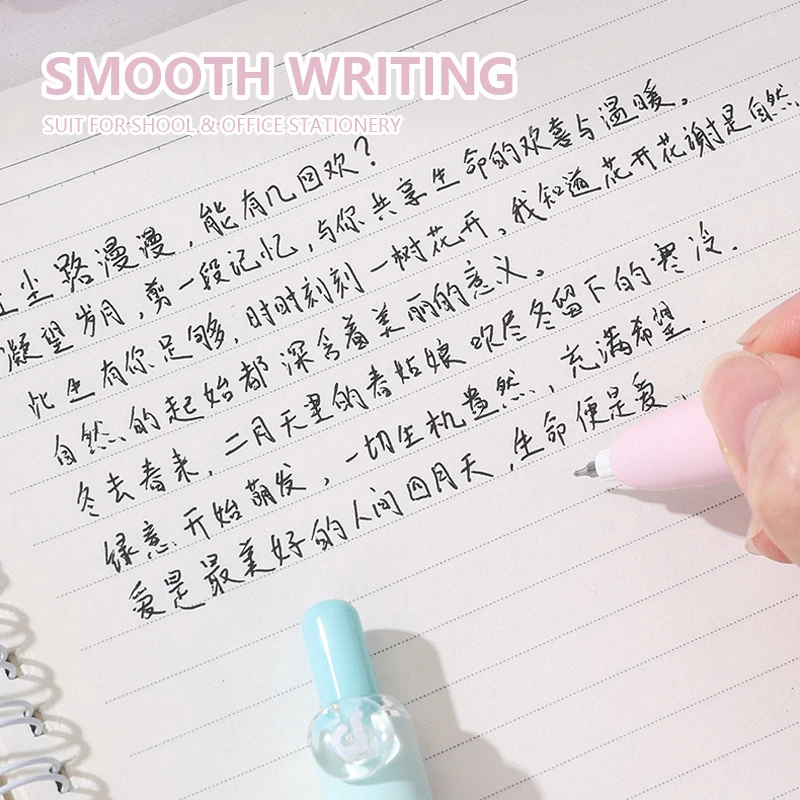 SMOOTH WRITING
SUIT FOR SHOOL & OFFICE STATIONERY
尘路漫漫，能有几回欢？
凝望岁月，剪一段记忆，与你共享生命的欢喜与温暖。
此生有你足够，时时刻刻一树花开。我知道花开花谢是自然，
自然的起始都深含着美丽的意义。
冬去春来，二月天里的春姑娘 吹尽冬留下的寒冷．
绿意开始萌发，一切生机盎然，充满希望．
爱是最美好的人间四月天，生命便是爱、